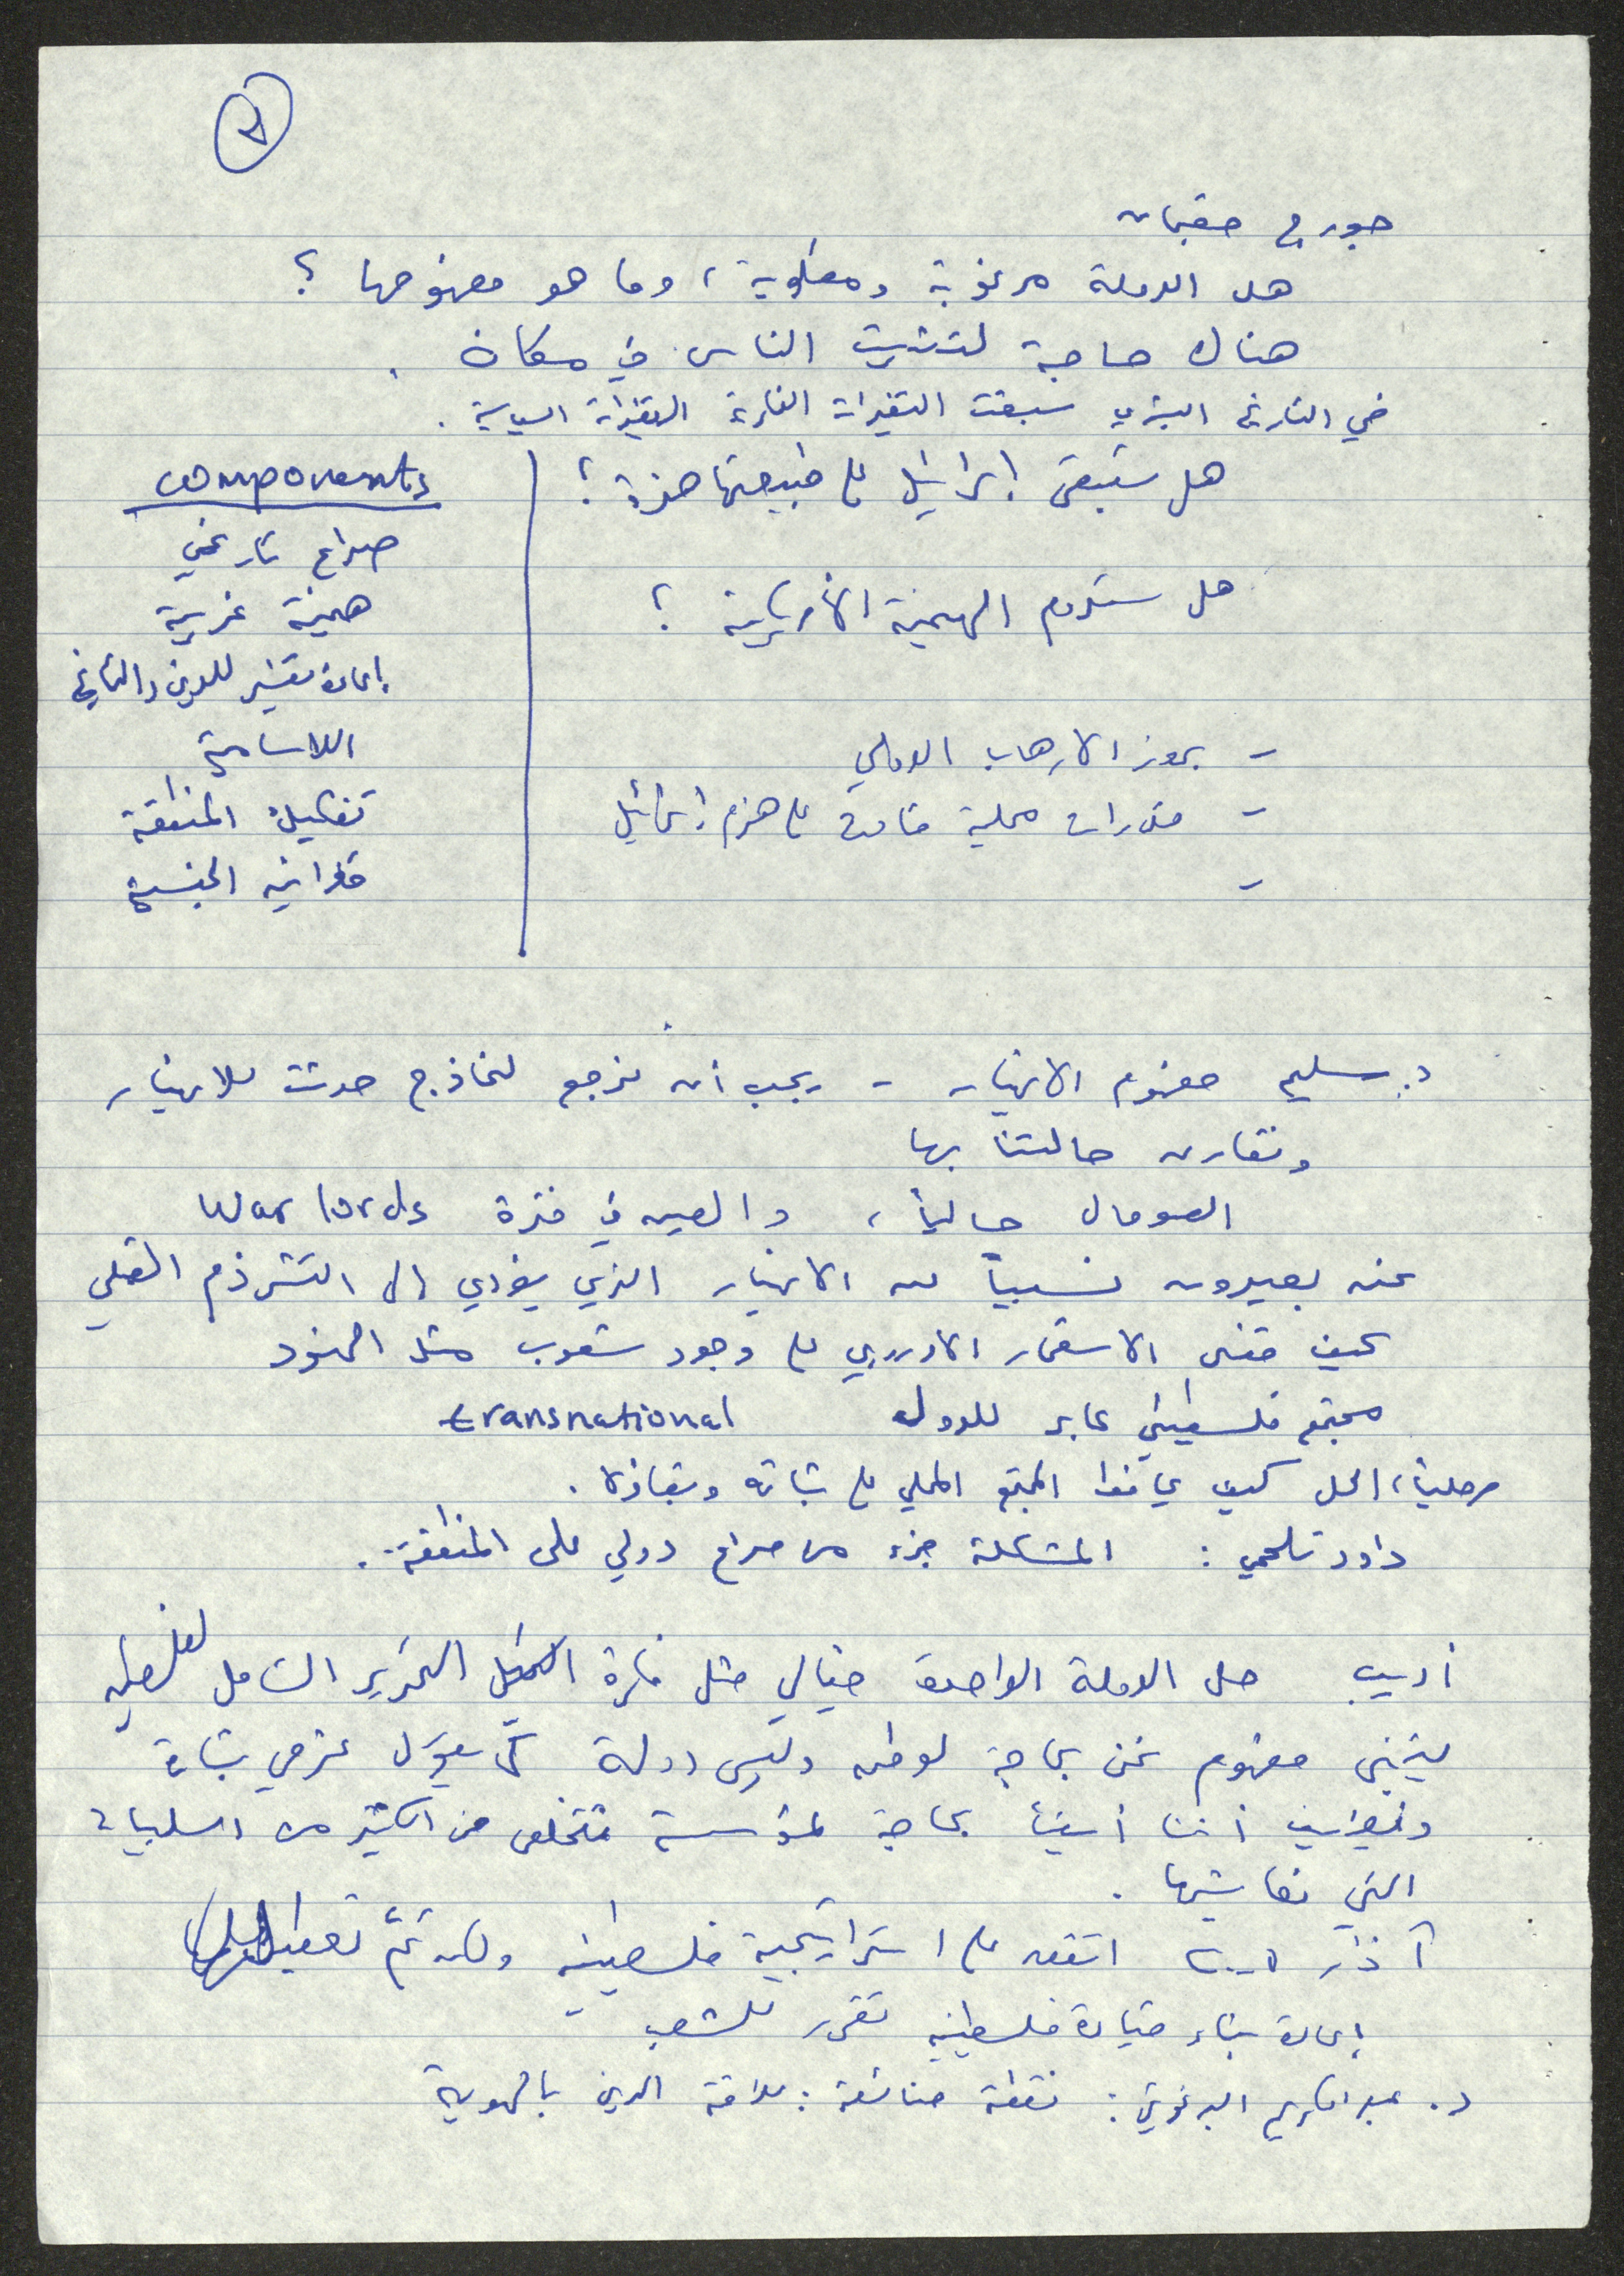 جورج حقمان
هل الدولة مرغوبة ومطلوبة، وما هو مفهومها ؟
هناك حاجة لتثبيت الناس في مكان .
في التاريخ البشري سبقت التغيرات الفكرية التغيرات السياسية .
هل ستبقى إسرائيل على طبيعتها هذه ؟
هل ستدوم الهيمنة الأمريكية ؟
- بروز الارهاب الدولي
- قدرات محلية قادرة على هزم إسرائيل
-
components
صراع تاريخي
هيمنة غربية
إعادة تفسير للدين والتاريخ
اللاسامية
تفكيك المنطقة
قوانين الجنسية
د. سليم مفهوم الانهيار - يجب أن نرجع لنماذج حدثت للانهيار
ونقارن حالتنا بها
الصومال حالياً، والصين في فترة war lords
نحن بعيدون نسبياً عن الانهيار الذي يؤدي إلى التشرذم القبلي
كيف قضى الاستعمار الأوروبي على وجود شعوب مثل الهنود
مجتمع فلسطيني عابر للدول transnational
مرحلياً، الحل كيف يحافظ المجتمع المحلي على ثباته وبقاؤه .
داود تلحمي : المشكلة جزء من صراع دولي على المنطقة .
أديب حل الدولة الواحدة خيالي مثل فكرة التحرير الشامل لفلسطين
يتبنى مفهوم نحن بحاجة لوطن وليس دولة كما يقول عزمي بشارة
أننا أيضاً بحاجة لمؤسسة تتخلص من الكثير من السلبيات
التي نعايشها .
آذار ٢٠٠٥ اتفقد على استراتيجية فلسطينية ولكن تمّ تعطيلها
إعادة بناء قيادة فلسطينية تقرر للشعب
د. عبد الكريم البرغوثي : نقطة مناقشة : علاقة الدين بالهوية